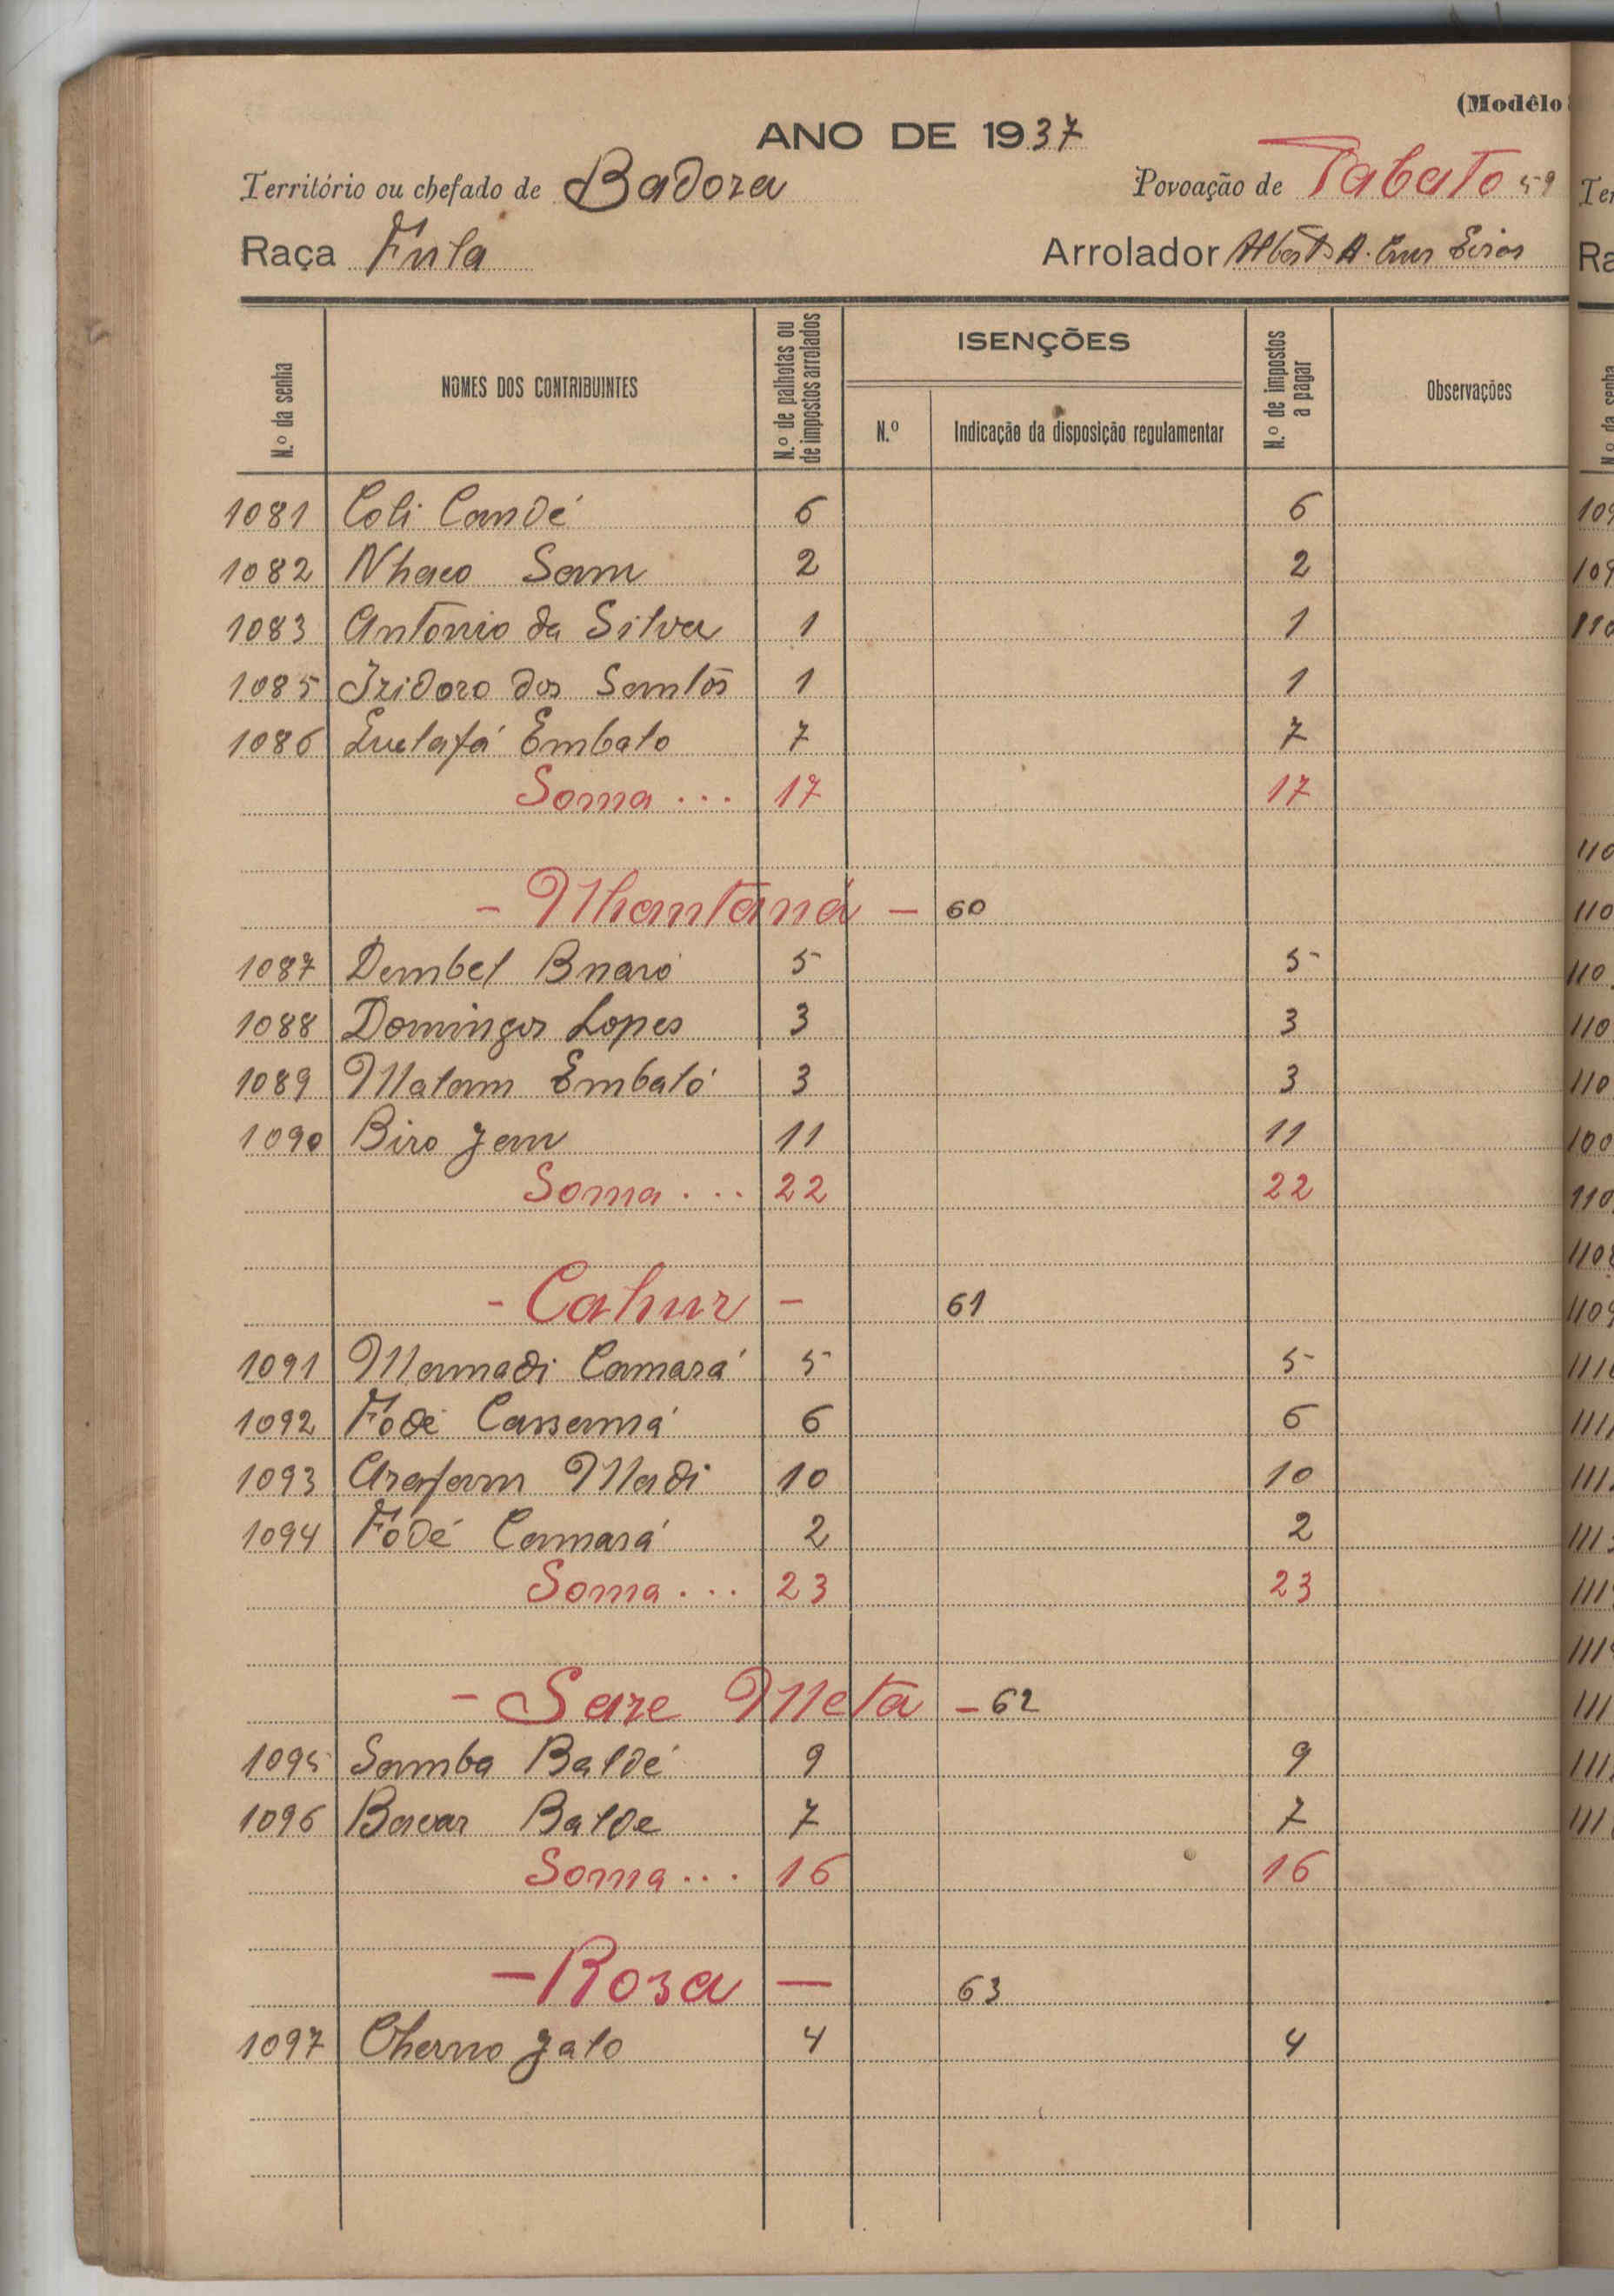 (Modêlo
ANO DE 1937
Território ou chefado de Badora Povoação de Tabato 59
Raça Fula Arrolador Alberto A. Cruz
N.º da senha NOMES DOS CONTRIBUINTES N.º de palhotas ou de impostos arrolados ISENÇÕES N.º Indicação da disposição regulamentar N.º de impostos a pagar Observações
1081 Coli Candé 6 6
1082 Nhaco Sam 2 2
1083 Antonio da Silva 1 1
1085 Izidoro dos Santos 1 1
1086 Embalo 7 7
Soma... 17 17
- Nhantaná - 60
1087 Dembel Buaró 5 5
1088 Domingos Lopes 3 3
1089 Malam Embaló 3 3
1090 Biro Jam 11 11
Soma... 22 22
- Cahur - 61
1091 Mamadi Camará 5 5
1092 Fodé Cassamá 6 6
1093 Arafam Madi 10 10
1094 Fodé Camará 2 2
Soma... 23 23
- Sare Meta - 62
1095 Samba Baldé 9 9
1096 Bavar Balde 7 7
Soma... 16 16
- Rosa - 63
1097 Cherno Jalo 4 4